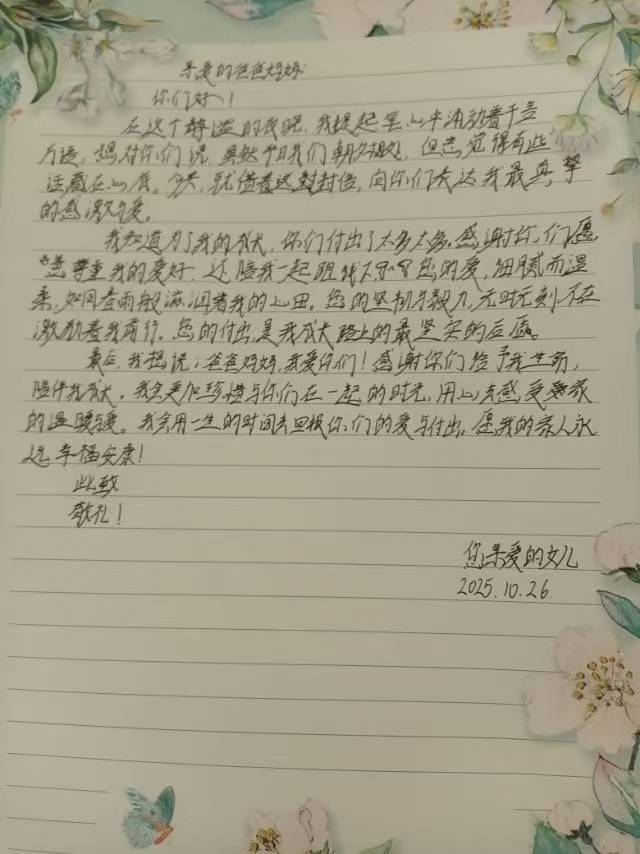 亲爱的爸爸妈妈:
你们好!
在这个静谧的夜晚,我提起笔,心中涌动着千言
万语,想对你们说,虽然平日我们朝夕相处,但总觉得有些
话藏在心底。今天,就借着这封信,向你们表达我最真挚
的感激与爱。
我知道为了我的成长,你们付出了太多太多。感谢你们愿
意尊重我的爱好,还陪我一起 您的爱,细腻而温
柔,如同春雨般滋润着我的心田。您的坚韧与毅力,无时无刻不在
激励着我前行。您的付出,是我成长路上的最坚实的后盾。
最后,我想说:爸爸妈妈,我爱你们!感谢你们给予我生命,
陪伴我成长。我会更加珍惜与你们在一起的时光,用心去感受家
的温暖与爱。我会用一生的时间去回报你们的爱与付出。愿我的家人永
远幸福安康!
此致
敬礼!
您亲爱的女儿
2025.10.26